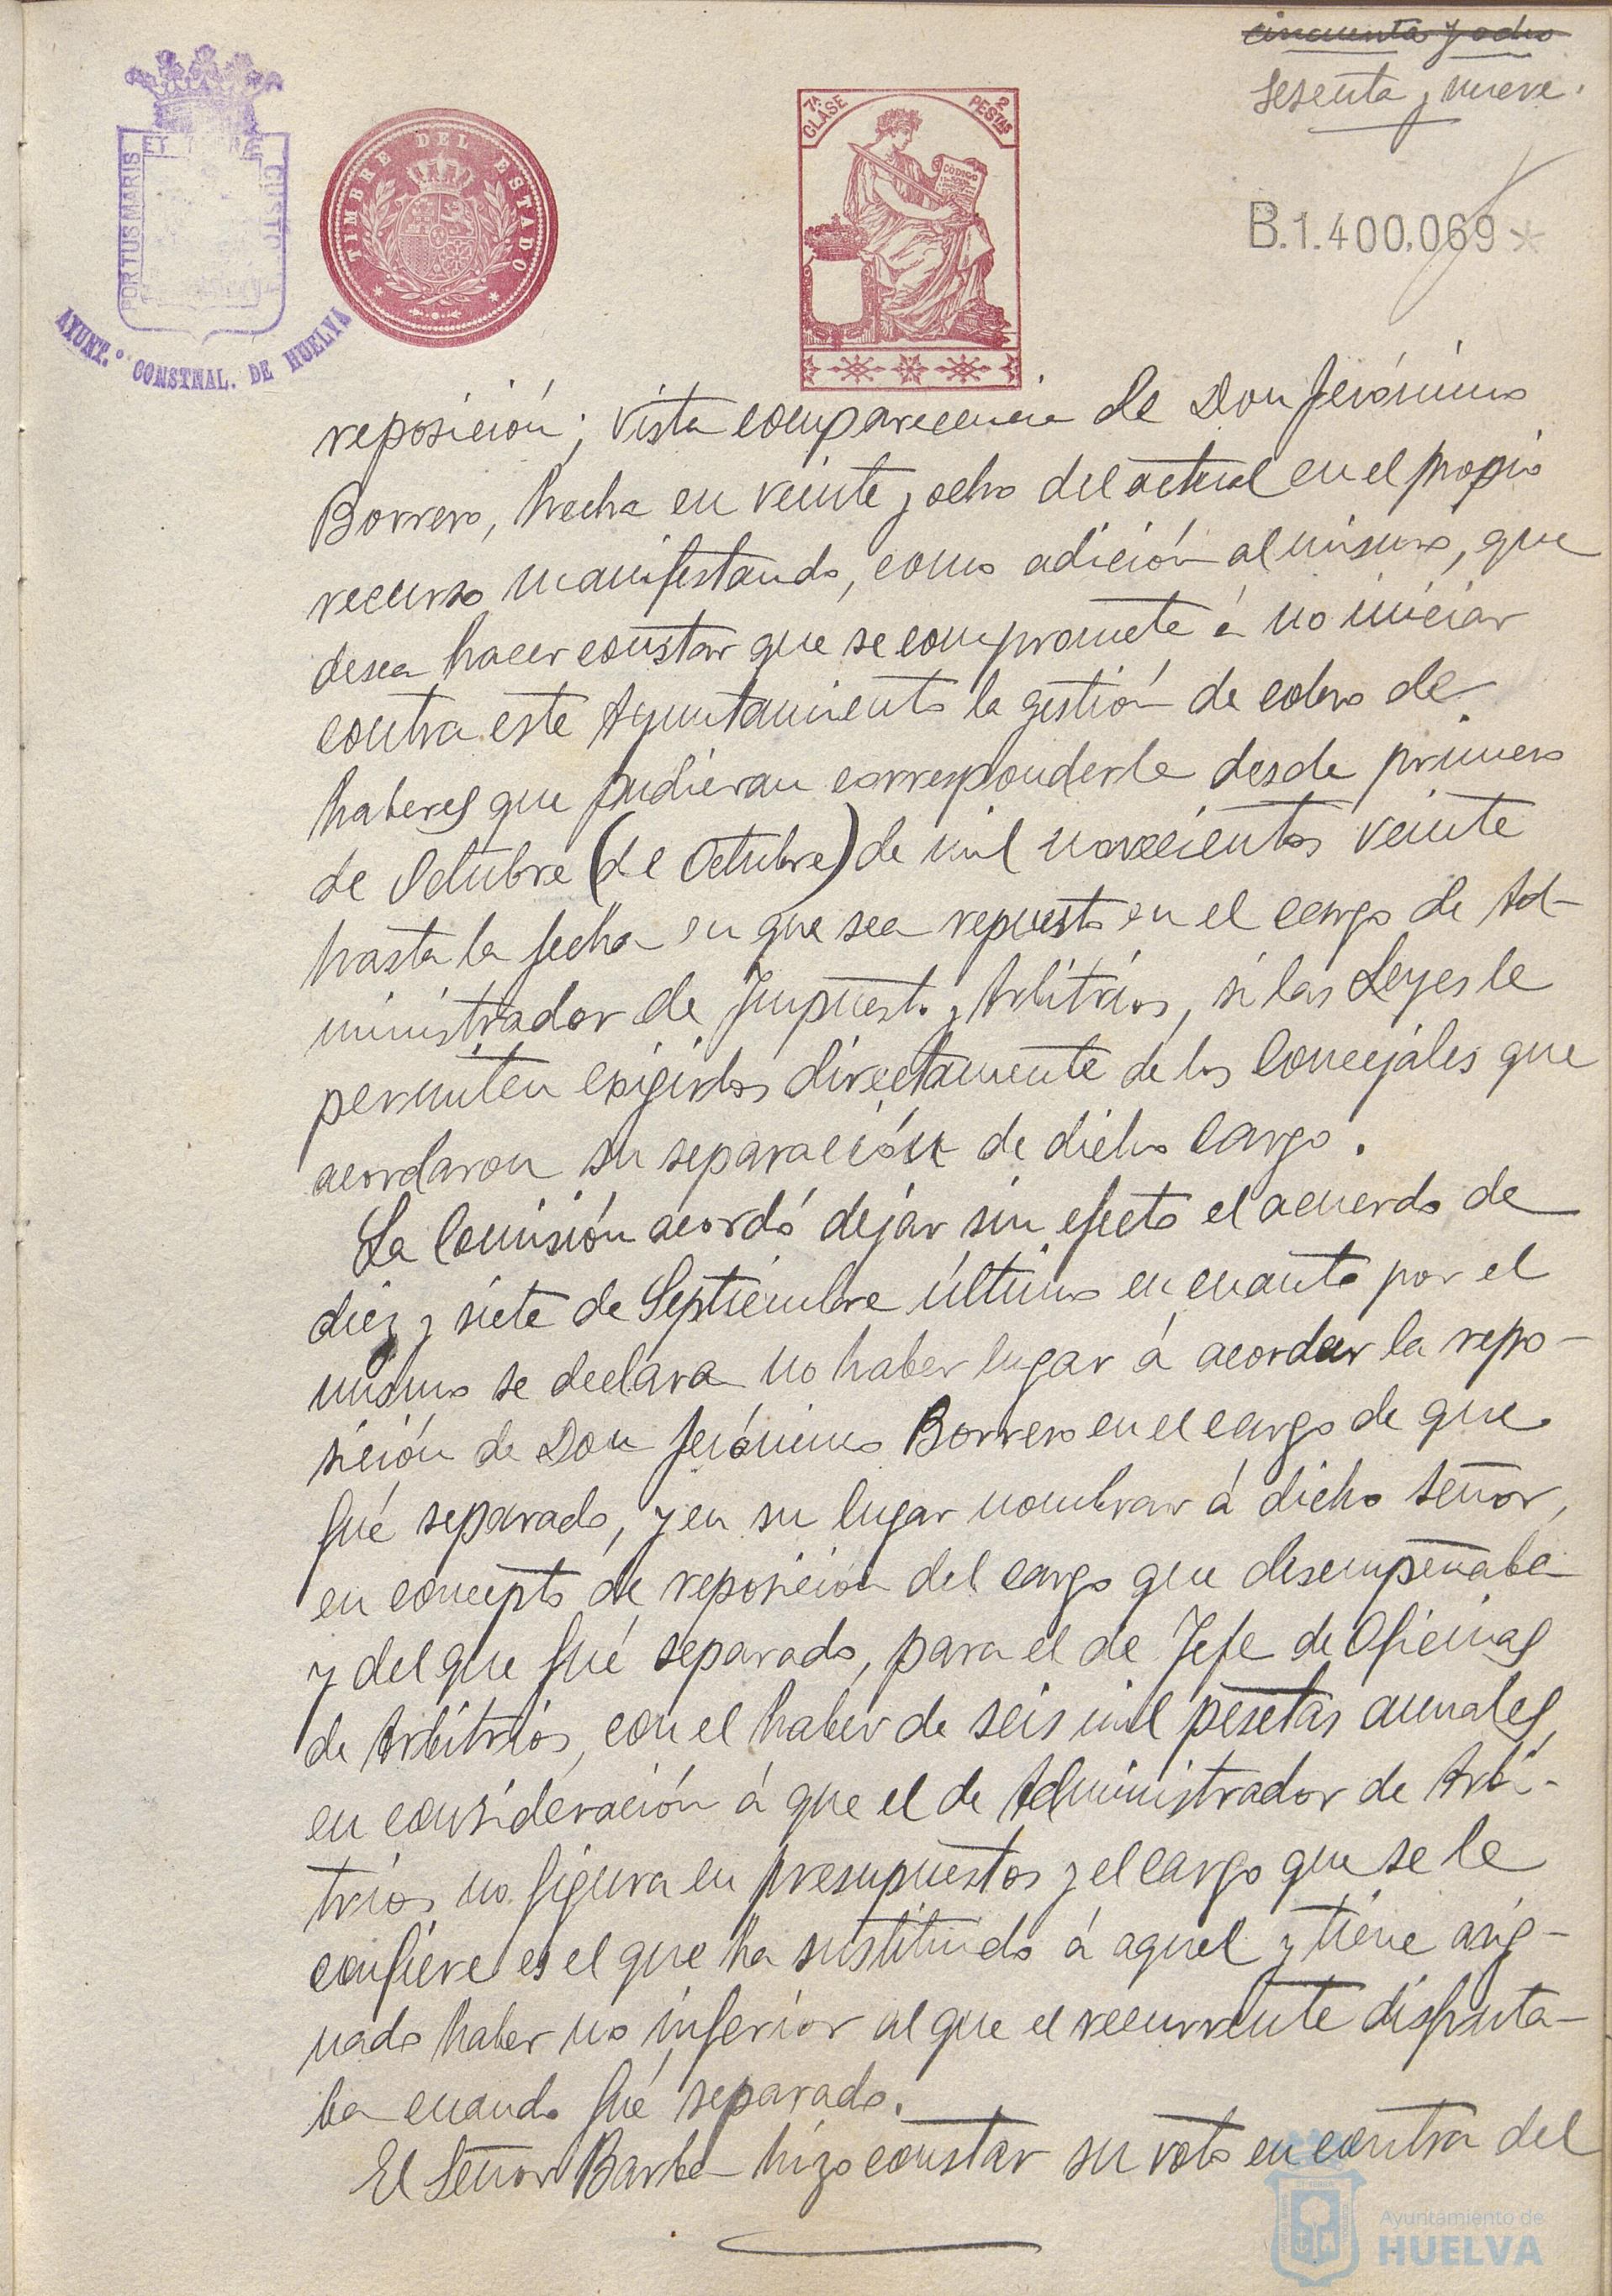 cincuenta y ocho
sesenta y nueve.
PORTUS MARIS ET CUSTO
AYUNT.º CONSTNAL. DE HUELVA
TIMBRE DEL ESTADO
7ª CLASE
2 PESTAS
CODIGO
B.1.400.069*
reposición; vista comparecencia de Don Jerónimo
Borrero, hecha en veinte y ocho del actual en el propio
recurso manifestando, como adición al mismo, que
desea hacer constar que se compromete á no iniciar
contra este Ayuntamiento la gestión de cobro de
haberes que pudieran corresponderle desde primero
de Octubre (de Octubre) de mil novecientos veinte
hasta la fecha en que sea repuesto en el cargo de Ad-
ministrador de Impuesto y Arbitrios, si las Leyes le
permiten exigirlos directamente de los Concejales que
acordaron su separación de dicho cargo.
La Comisión acordó dejar sin efecto el acuerdo de
diez y siete de Septiembre último en cuanto por el
mismo se declara no haber lugar á acordar la repo-
sición de Don Jerónimo Borrero en el cargo de que
fué separado, y en su lugar nombrar á dicho señor,
en concepto de reposición del cargo que desempeñaba
y del que fué separado, para el de Jefe de Oficinas
de Arbitrios, con el haber de seis mil pesetas anuales,
en consideración á que el de Administrador de Arbi-
trios no figura en presupuestos y el cargo que se le
confiere es el que ha sustituido á aquel y tiene asig-
nado haber no inferior al que el recurrente disfruta-
ba cuando fué separado.
El Señor Barba hizo constar su voto en contra del
Ayuntamiento de
HUELVA